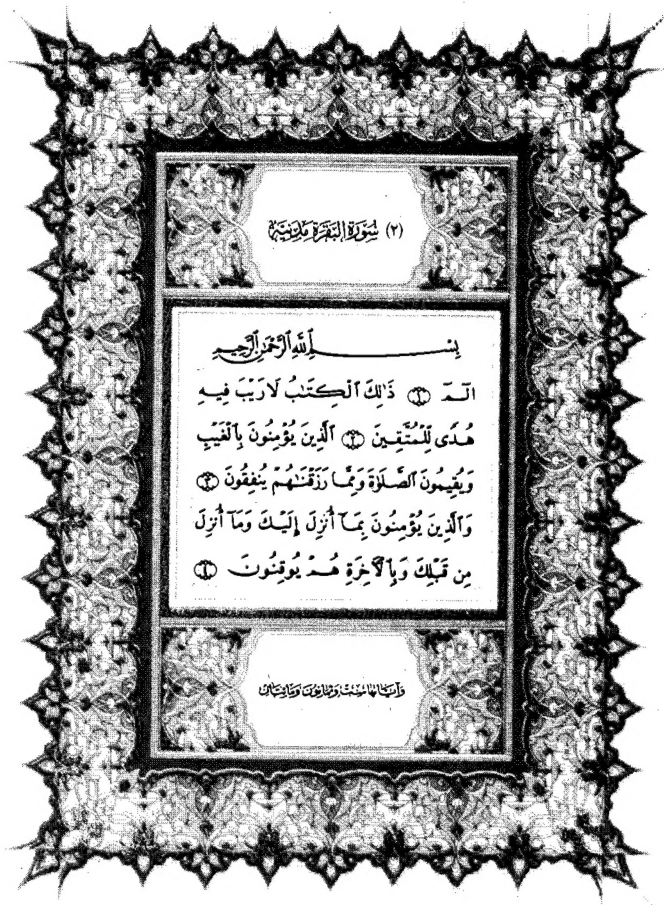 (٢) سُورَةُ البَقَرَةِ مَدَنِيَّة
بِسْمِ ٱللَّهِ ٱلرَّحْمَٰنِ ٱلرَّحِيمِ
الٓمٓ ١ ذَٰلِكَ ٱلْكِتَٰبُ لَا رَيْبَ فِيهِ
هُدًى لِّلْمُتَّقِينَ ٢ ٱلَّذِينَ يُؤْمِنُونَ بِٱلْغَيْبِ
وَيُقِيمُونَ ٱلصَّلَوٰةَ وَمِمَّا رَزَقْنَٰهُمْ يُنفِقُونَ ٣
وَٱلَّذِينَ يُؤْمِنُونَ بِمَآ أُنزِلَ إِلَيْكَ وَمَآ أُنزِلَ
مِن قَبْلِكَ وَبِٱلْءَاخِرَةِ هُمْ يُوقِنُونَ ٤
وآياتها ست وثمانون ومائتان